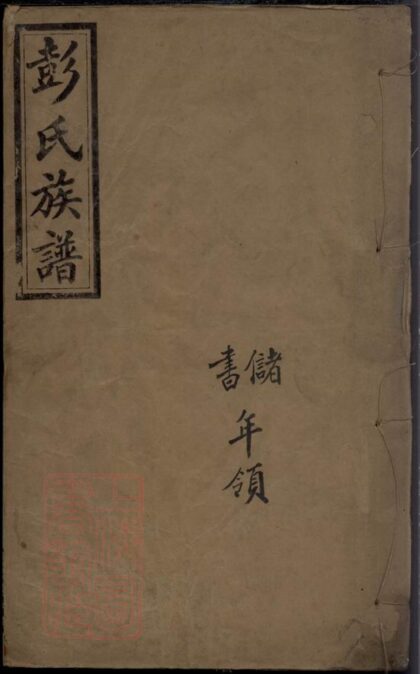 彭氏族譜
儲書
年領